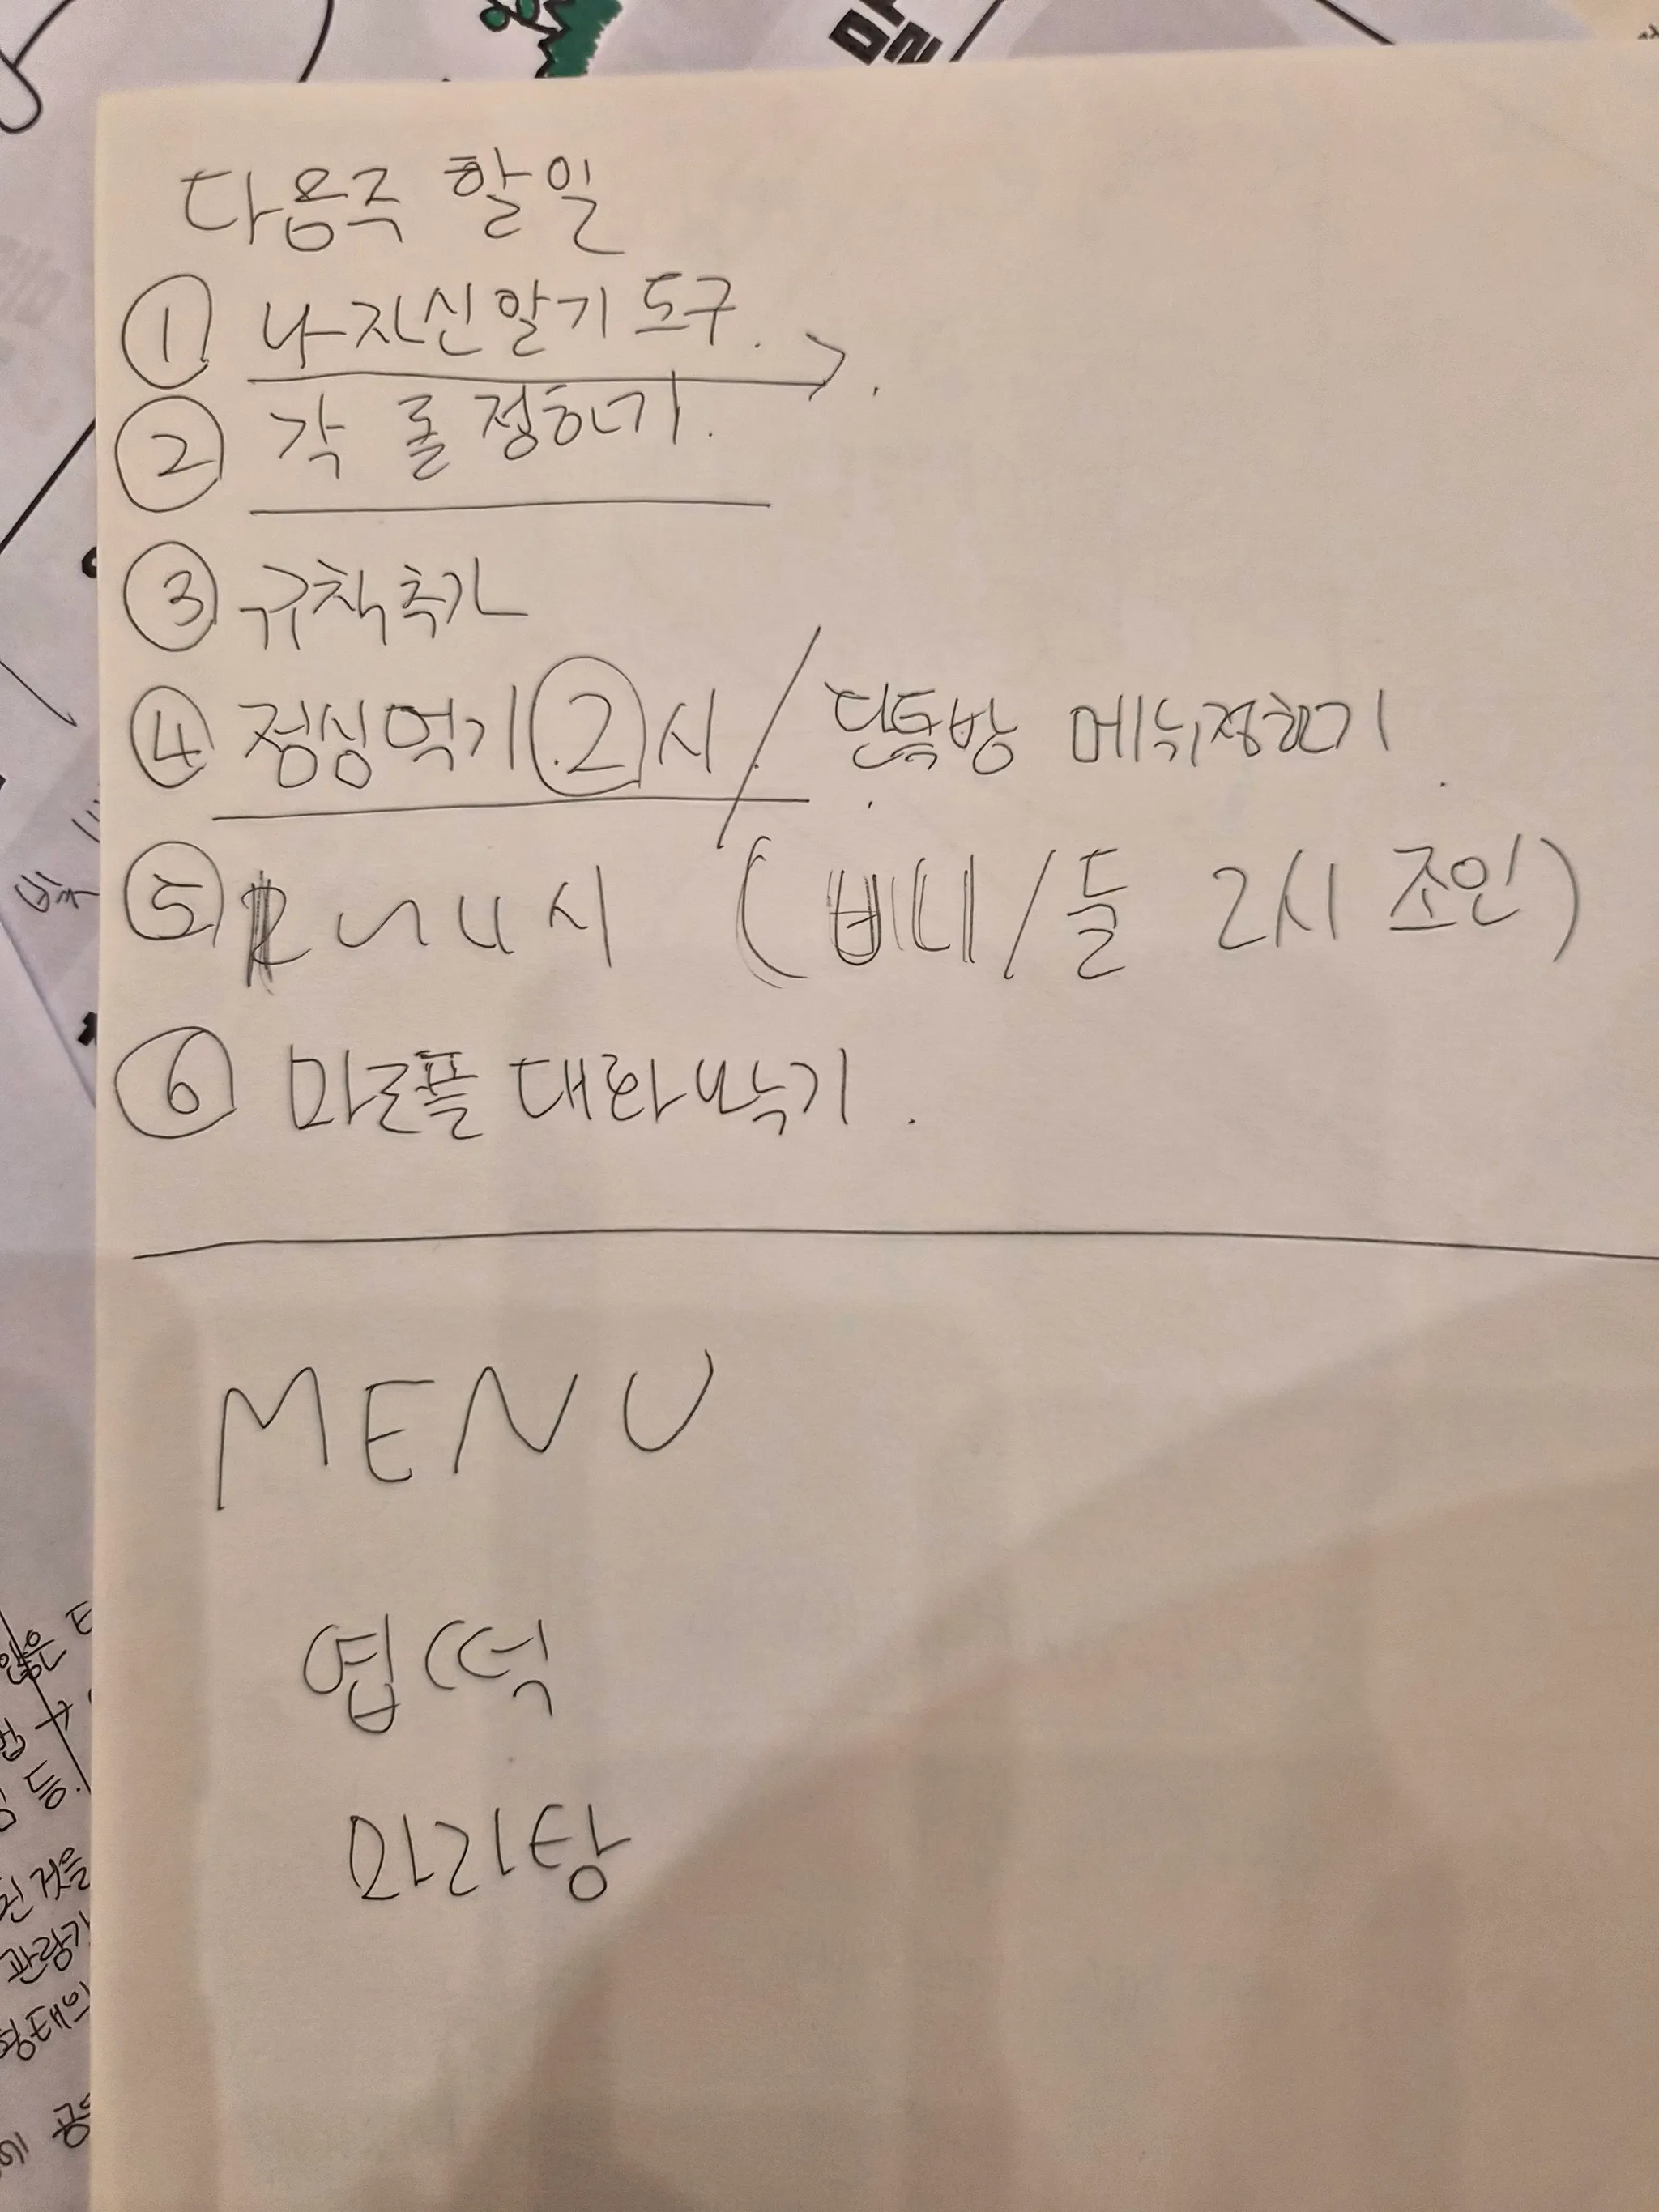 말
다음주 할일
① 나 자신 알기 도구.
② 각 롤 정하기.
③ 규칙추가
④ 점심먹기 2시 / 단톡방 메뉴정하기.
⑤ 시 (비니/들 2시 조인)
⑥ 마르플 대화나누기.
MENU
엽떡
마라탕
등.
된 것을
관람가
형태의